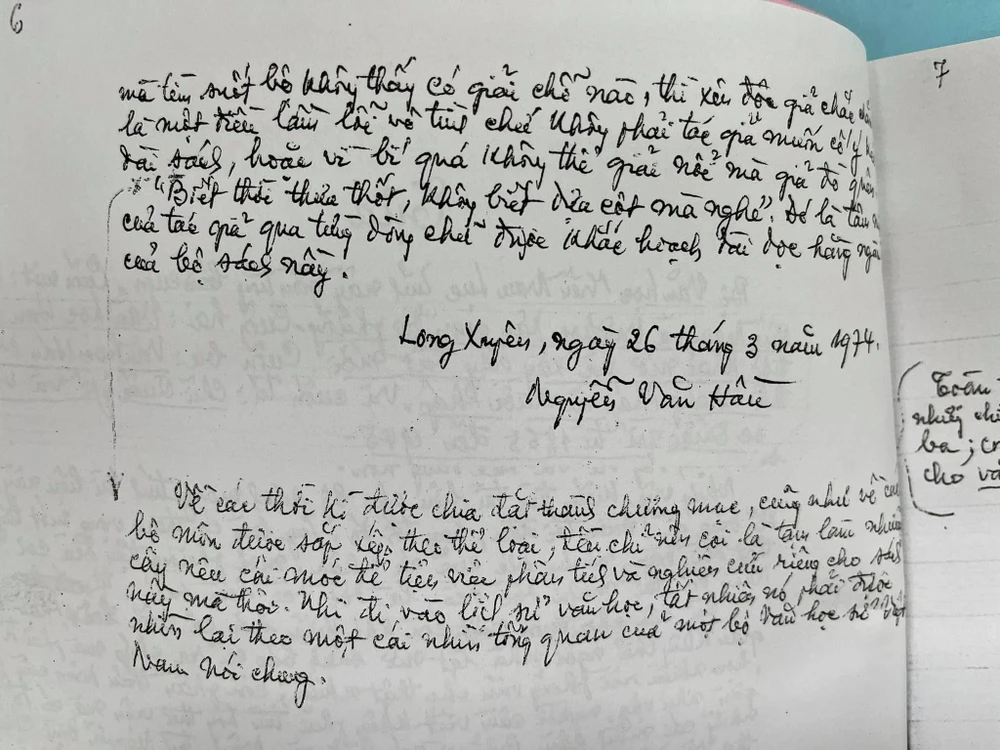 6
mà tìm suốt bộ không thấy có giải chỗ nào, thì xin độc giả chắc
là một điều lầm lỗi về tình chứ không phải tác giả muốn cố ý
dài sách, hoặc vì bí quá không thể giải nổi mà giả đò
"Biết thời thưa thốt, không biết dựa cột mà nghe". Đó là tâm
của tác giả qua từng dòng chữ được khắc hoạch dài dọc hằng
của bộ sách nầy.
Long Xuyên, ngày 26 tháng 3 năm 1974.
Nguyễn Văn Hầu
Về các thời kì được chia đặt thành chương mục, cũng như về
bộ môn được sắp xếp theo thể loại, đều chỉ nên coi là tạm làm
cây nêu cái mốc để tiện việc phân tích và nghiên cứu riêng cho sách
nầy mà thôi. Khi đi vào lịch sử văn học, tất nhiên nó phải được
nhìn lại theo một cái nhìn tổng quan của một bộ văn học sử Việt
Nam nói chung.
7
Toàn
những
ba;
cho